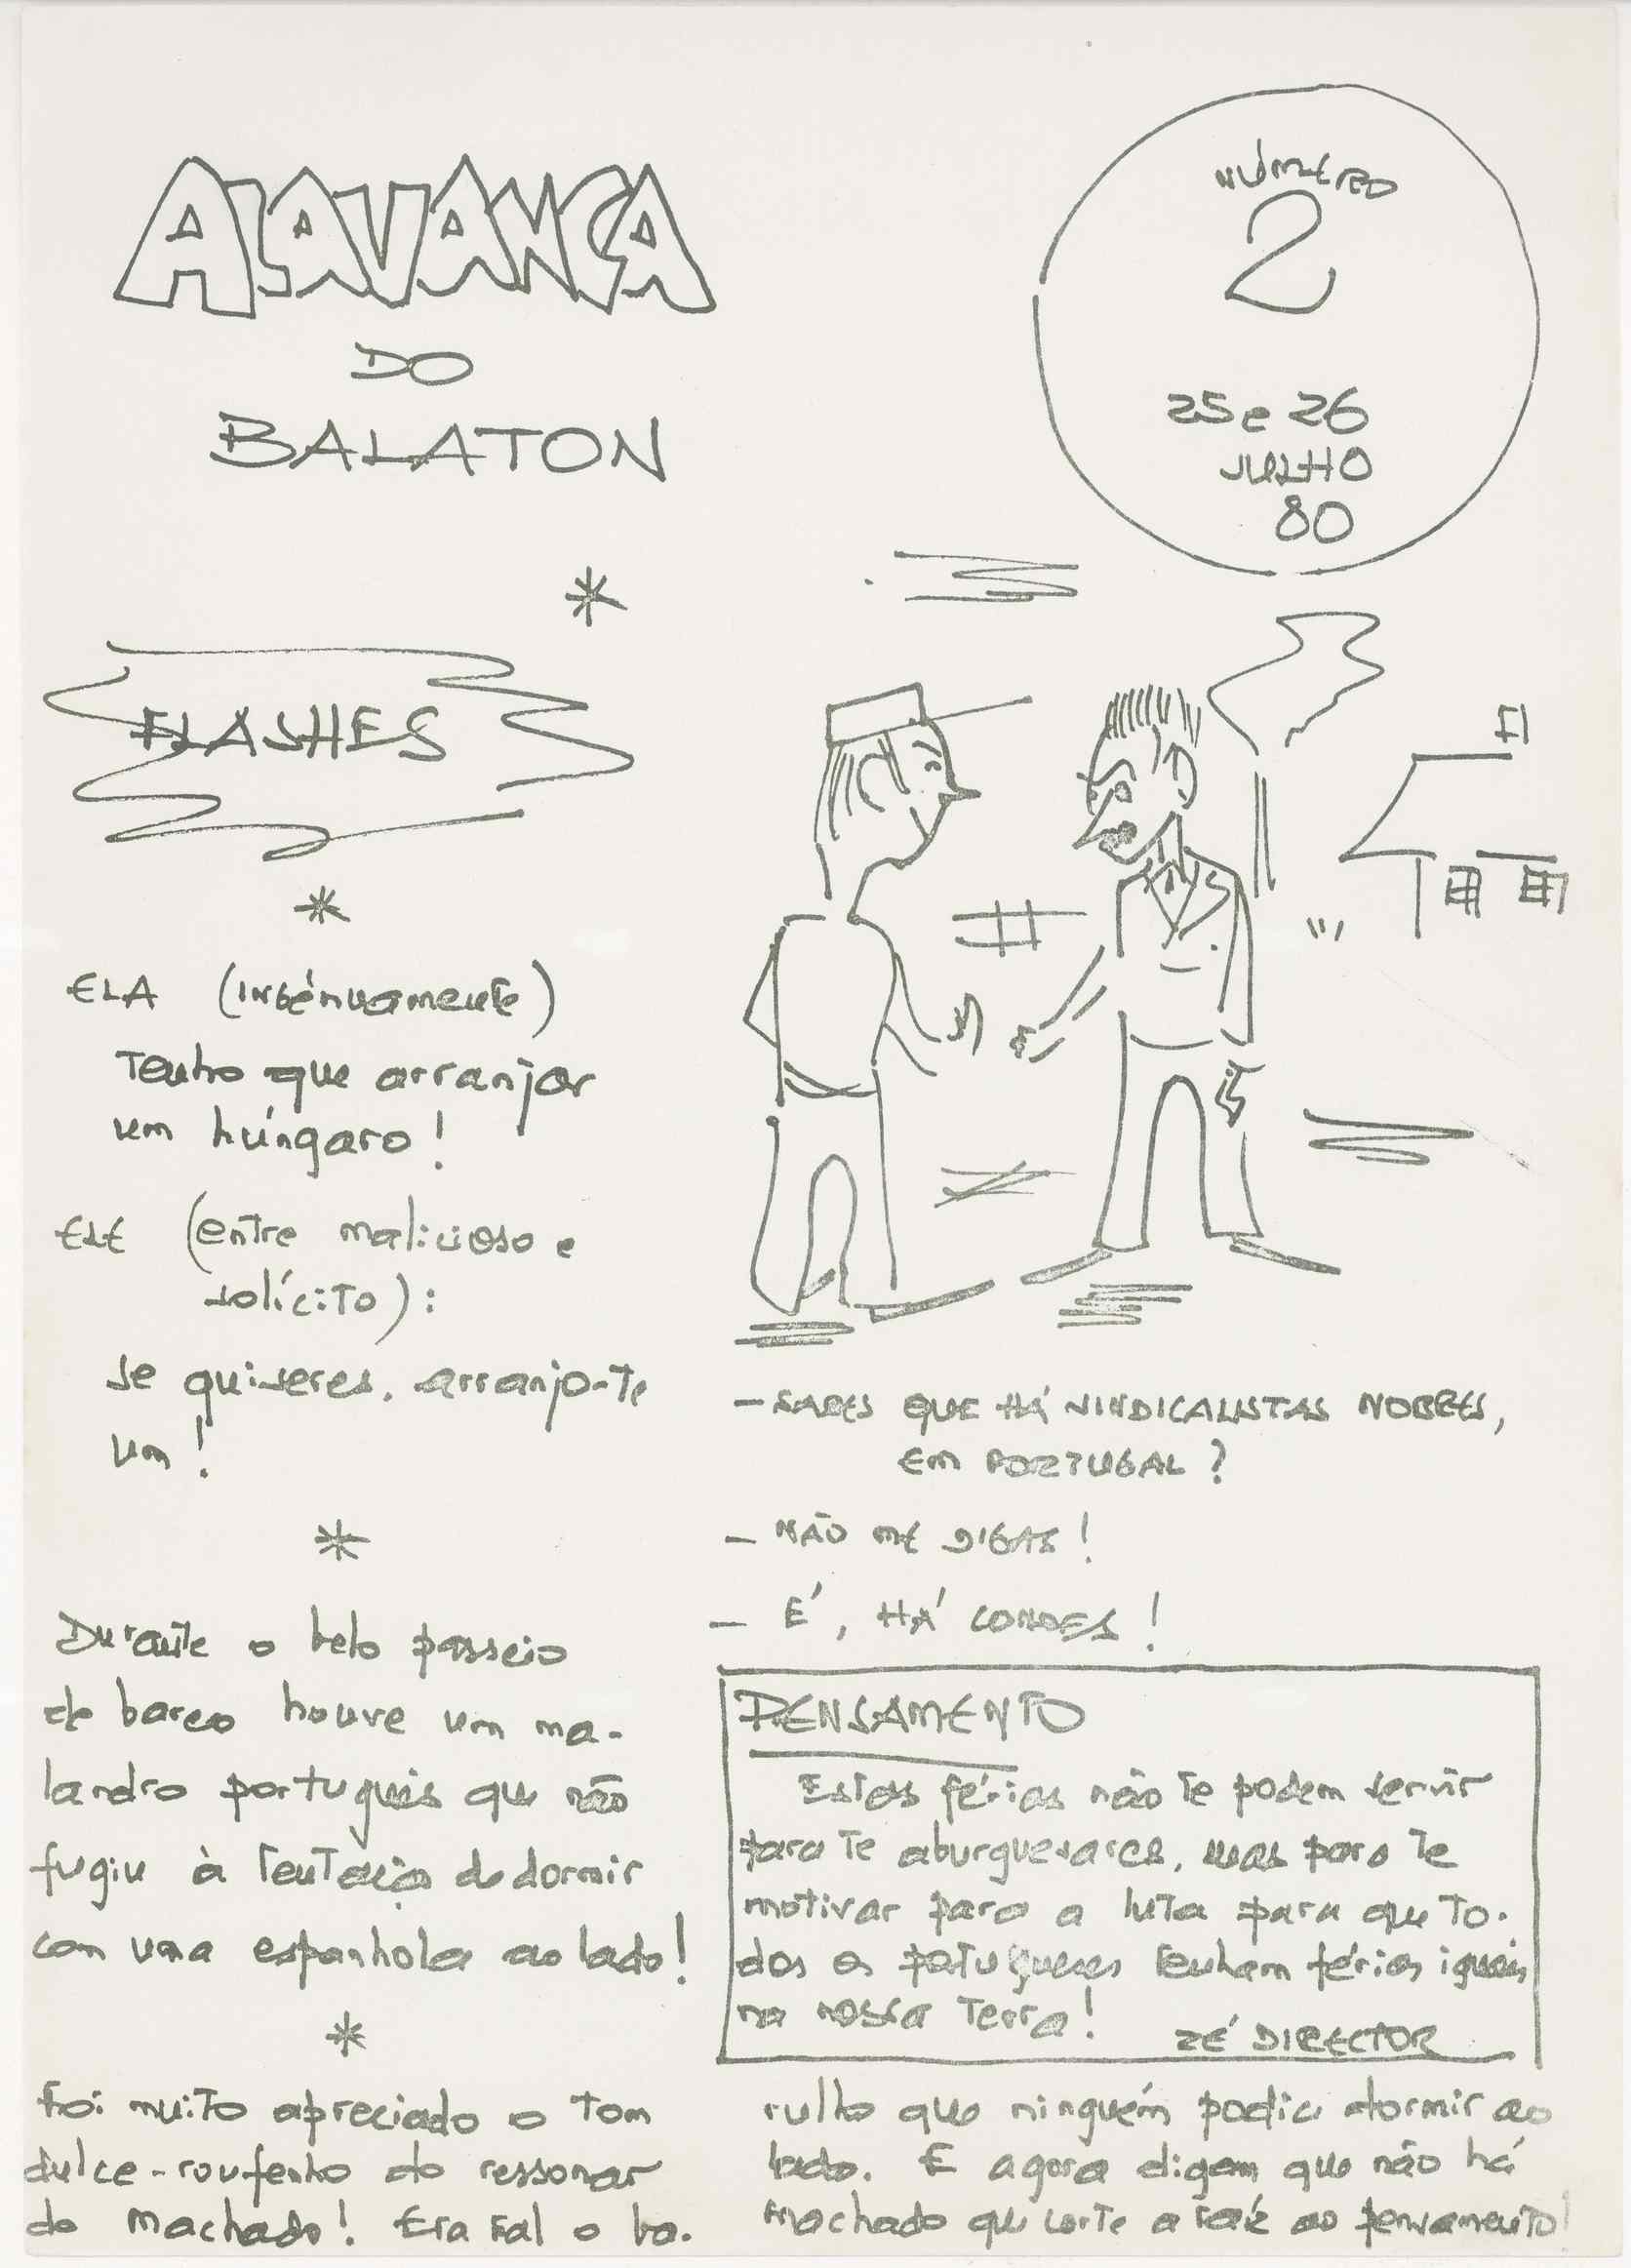 ALAVANCA
DO
BALATON
NÚMERO
2
25 e 26
JULHO
80
*
FLASHES
*
ELA (ingénuamente)
Tenho que arranjar
um húngaro!
ELE (entre malicioso e
solícito):
Se quiseres, arranjo-te
um!
*
Durante o belo passeio
de barco houve um ma-
landro português que não
fugiu à tentação de dormir
com uma espanhola ao lado!
*
Foi muito apreciado o tom
dulce-roufenho do ressonar
do Machado! Era tal o ba-
- SABES QUE HÁ SINDICALISTAS NOBRES,
EM PORTUGAL?
- NÃO ME DIGAS!
- É, HÁ CONDES!
PENSAMENTO
Estas férias não te podem servir
para te aburguesares, mas para te
motivar para a luta para que to-
dos os portugueses tenham férias iguais
na nossa terra!
ZÉ DIRECTOR
rulho que ninguém podia dormir ao
lado. E agora digam que não há
machado que corte a raíz ao pensamento!